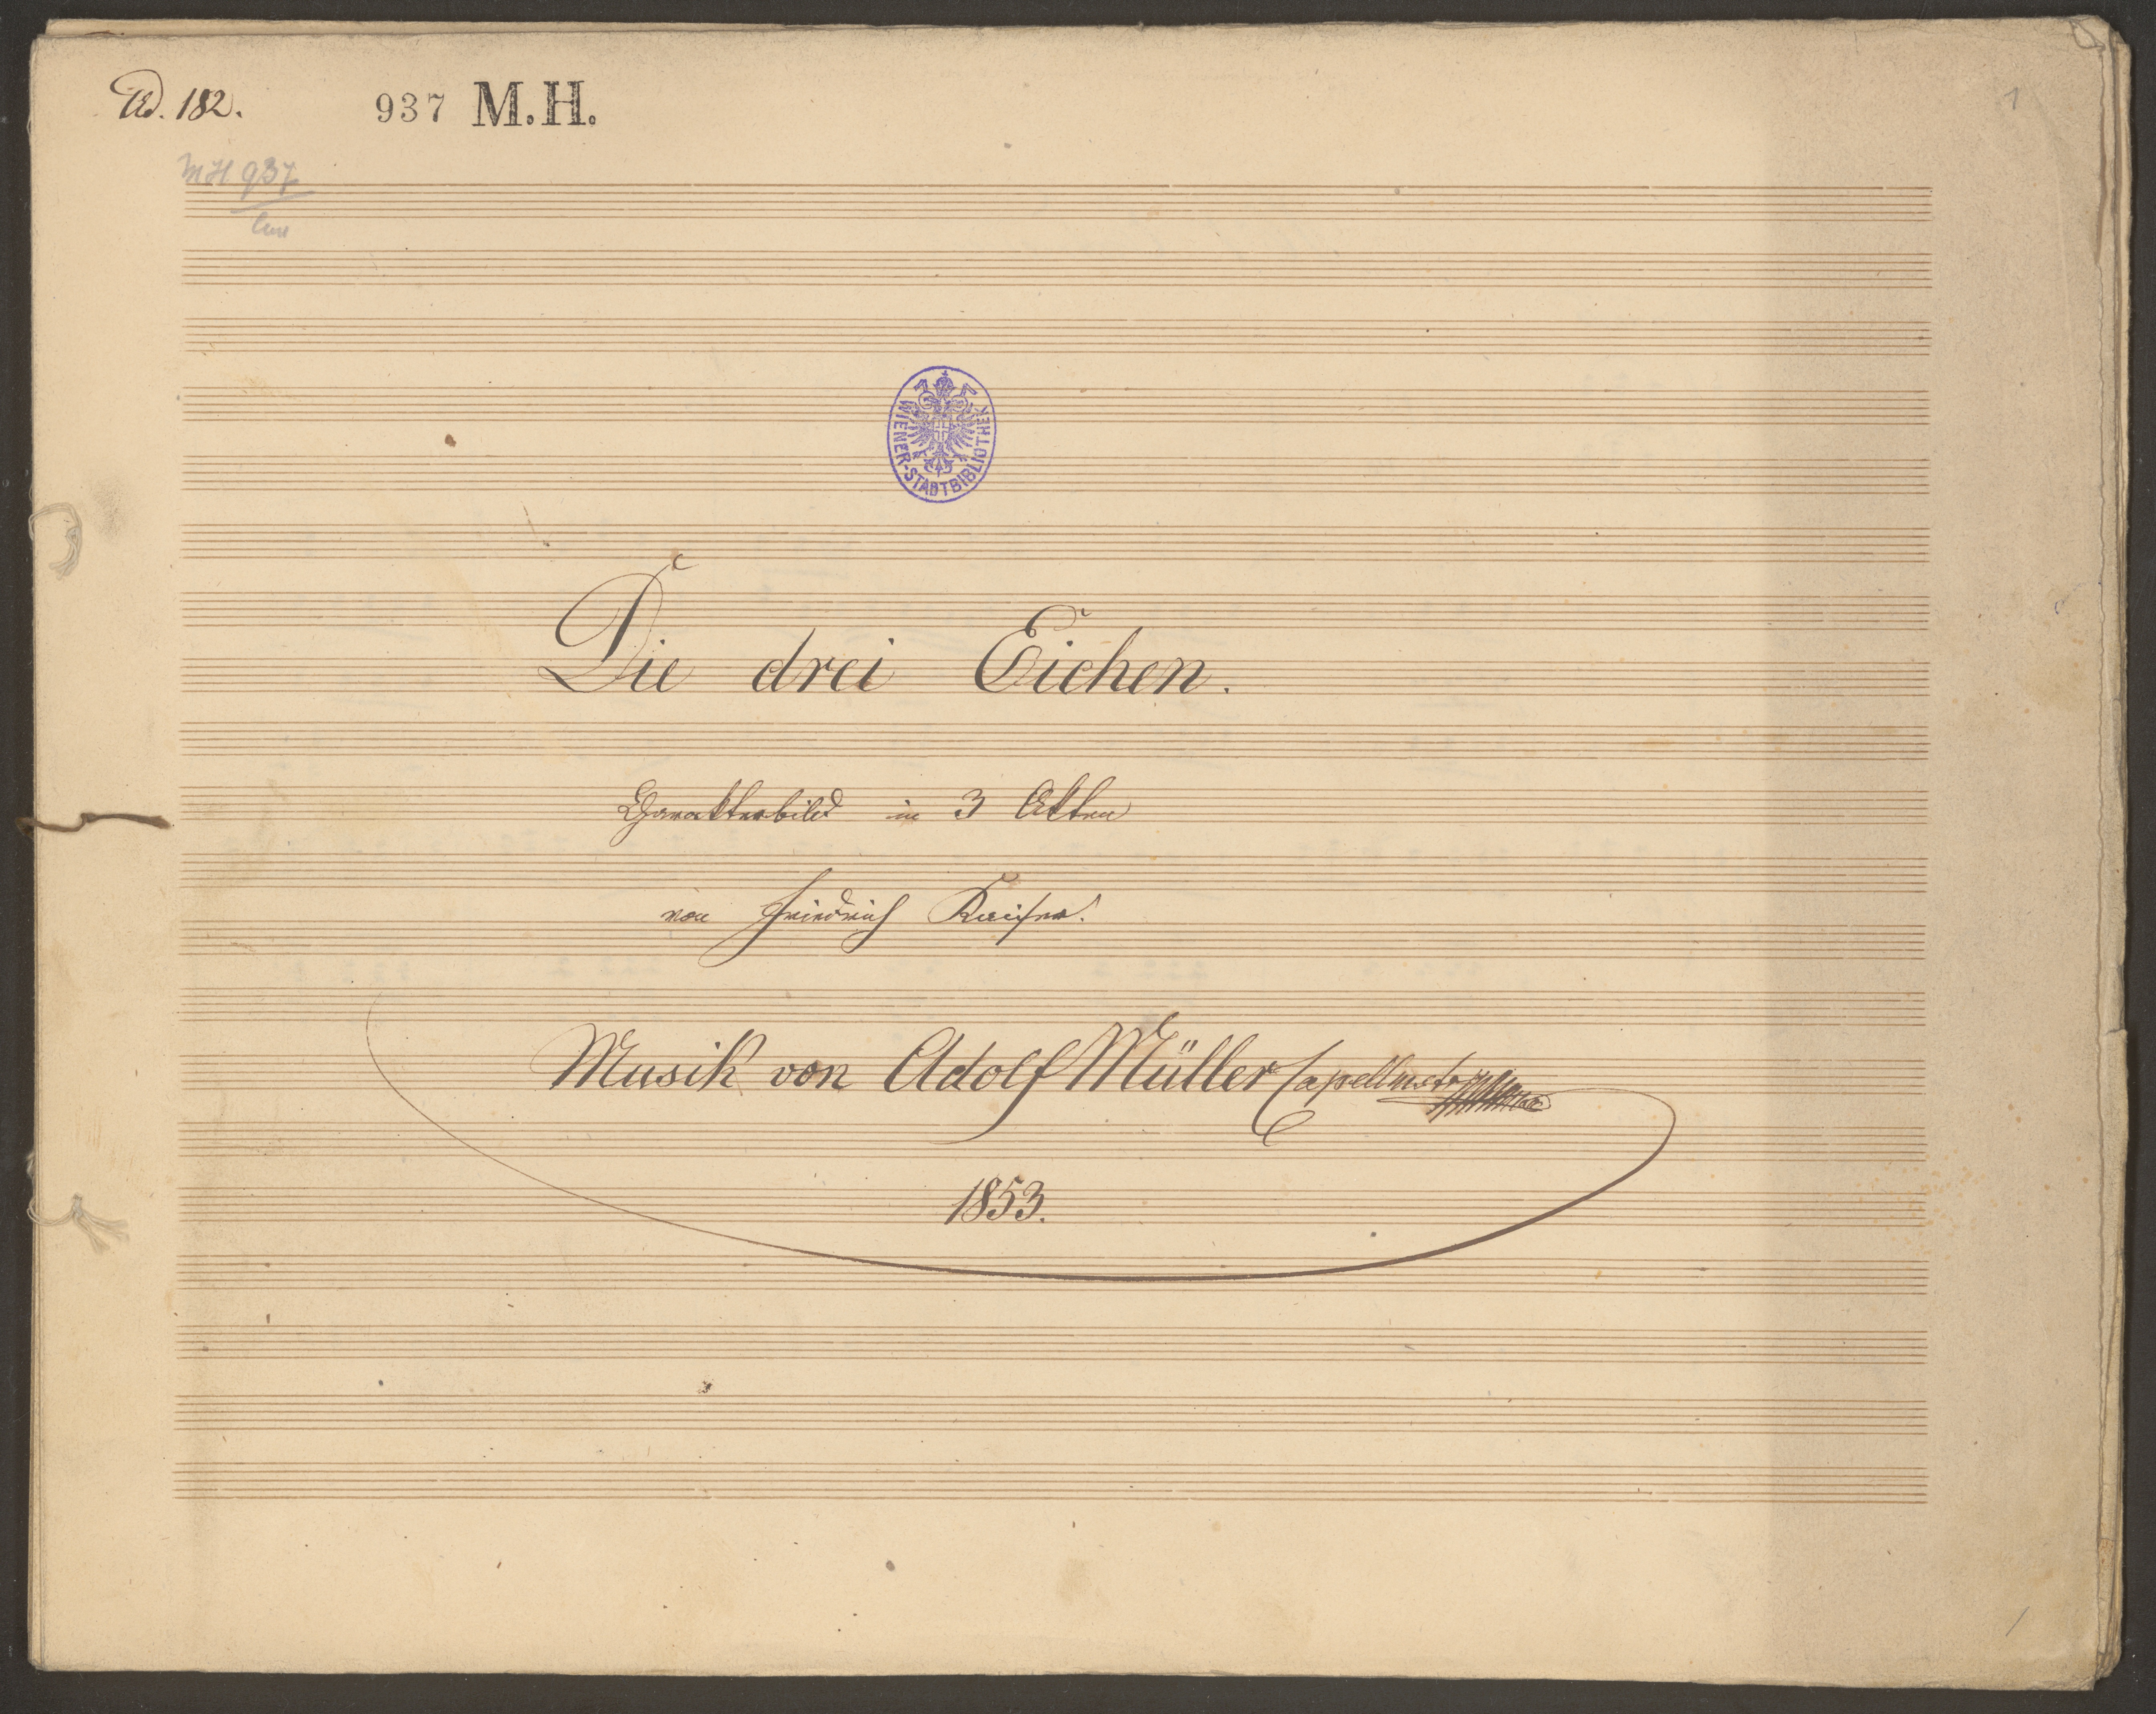 Ad. 182.
937 M.H.
1
MH 937
WIENER-STADTBIBLIOTHEK
Die drei Eichen.
Charakterbild in 3 Akten
von Friedrich Kaiser.
Musik von Adolf Müller Capellmstr
1853.